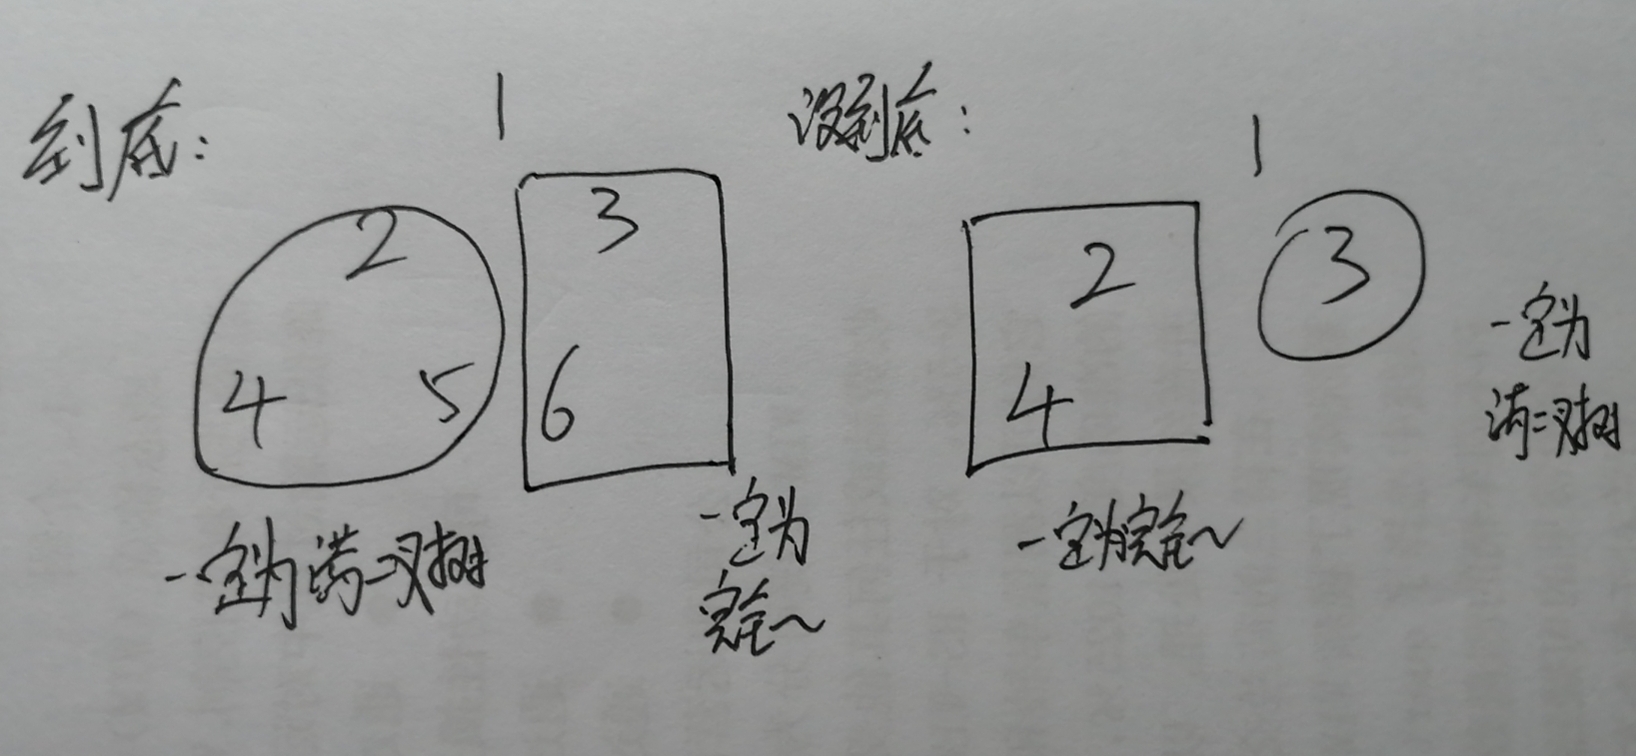 到底:
1
2
3
4
5
6
一定为满二叉树
一定为
完全~
没到底:
1
2
3
4
一定为完全~
一定为
满二叉树